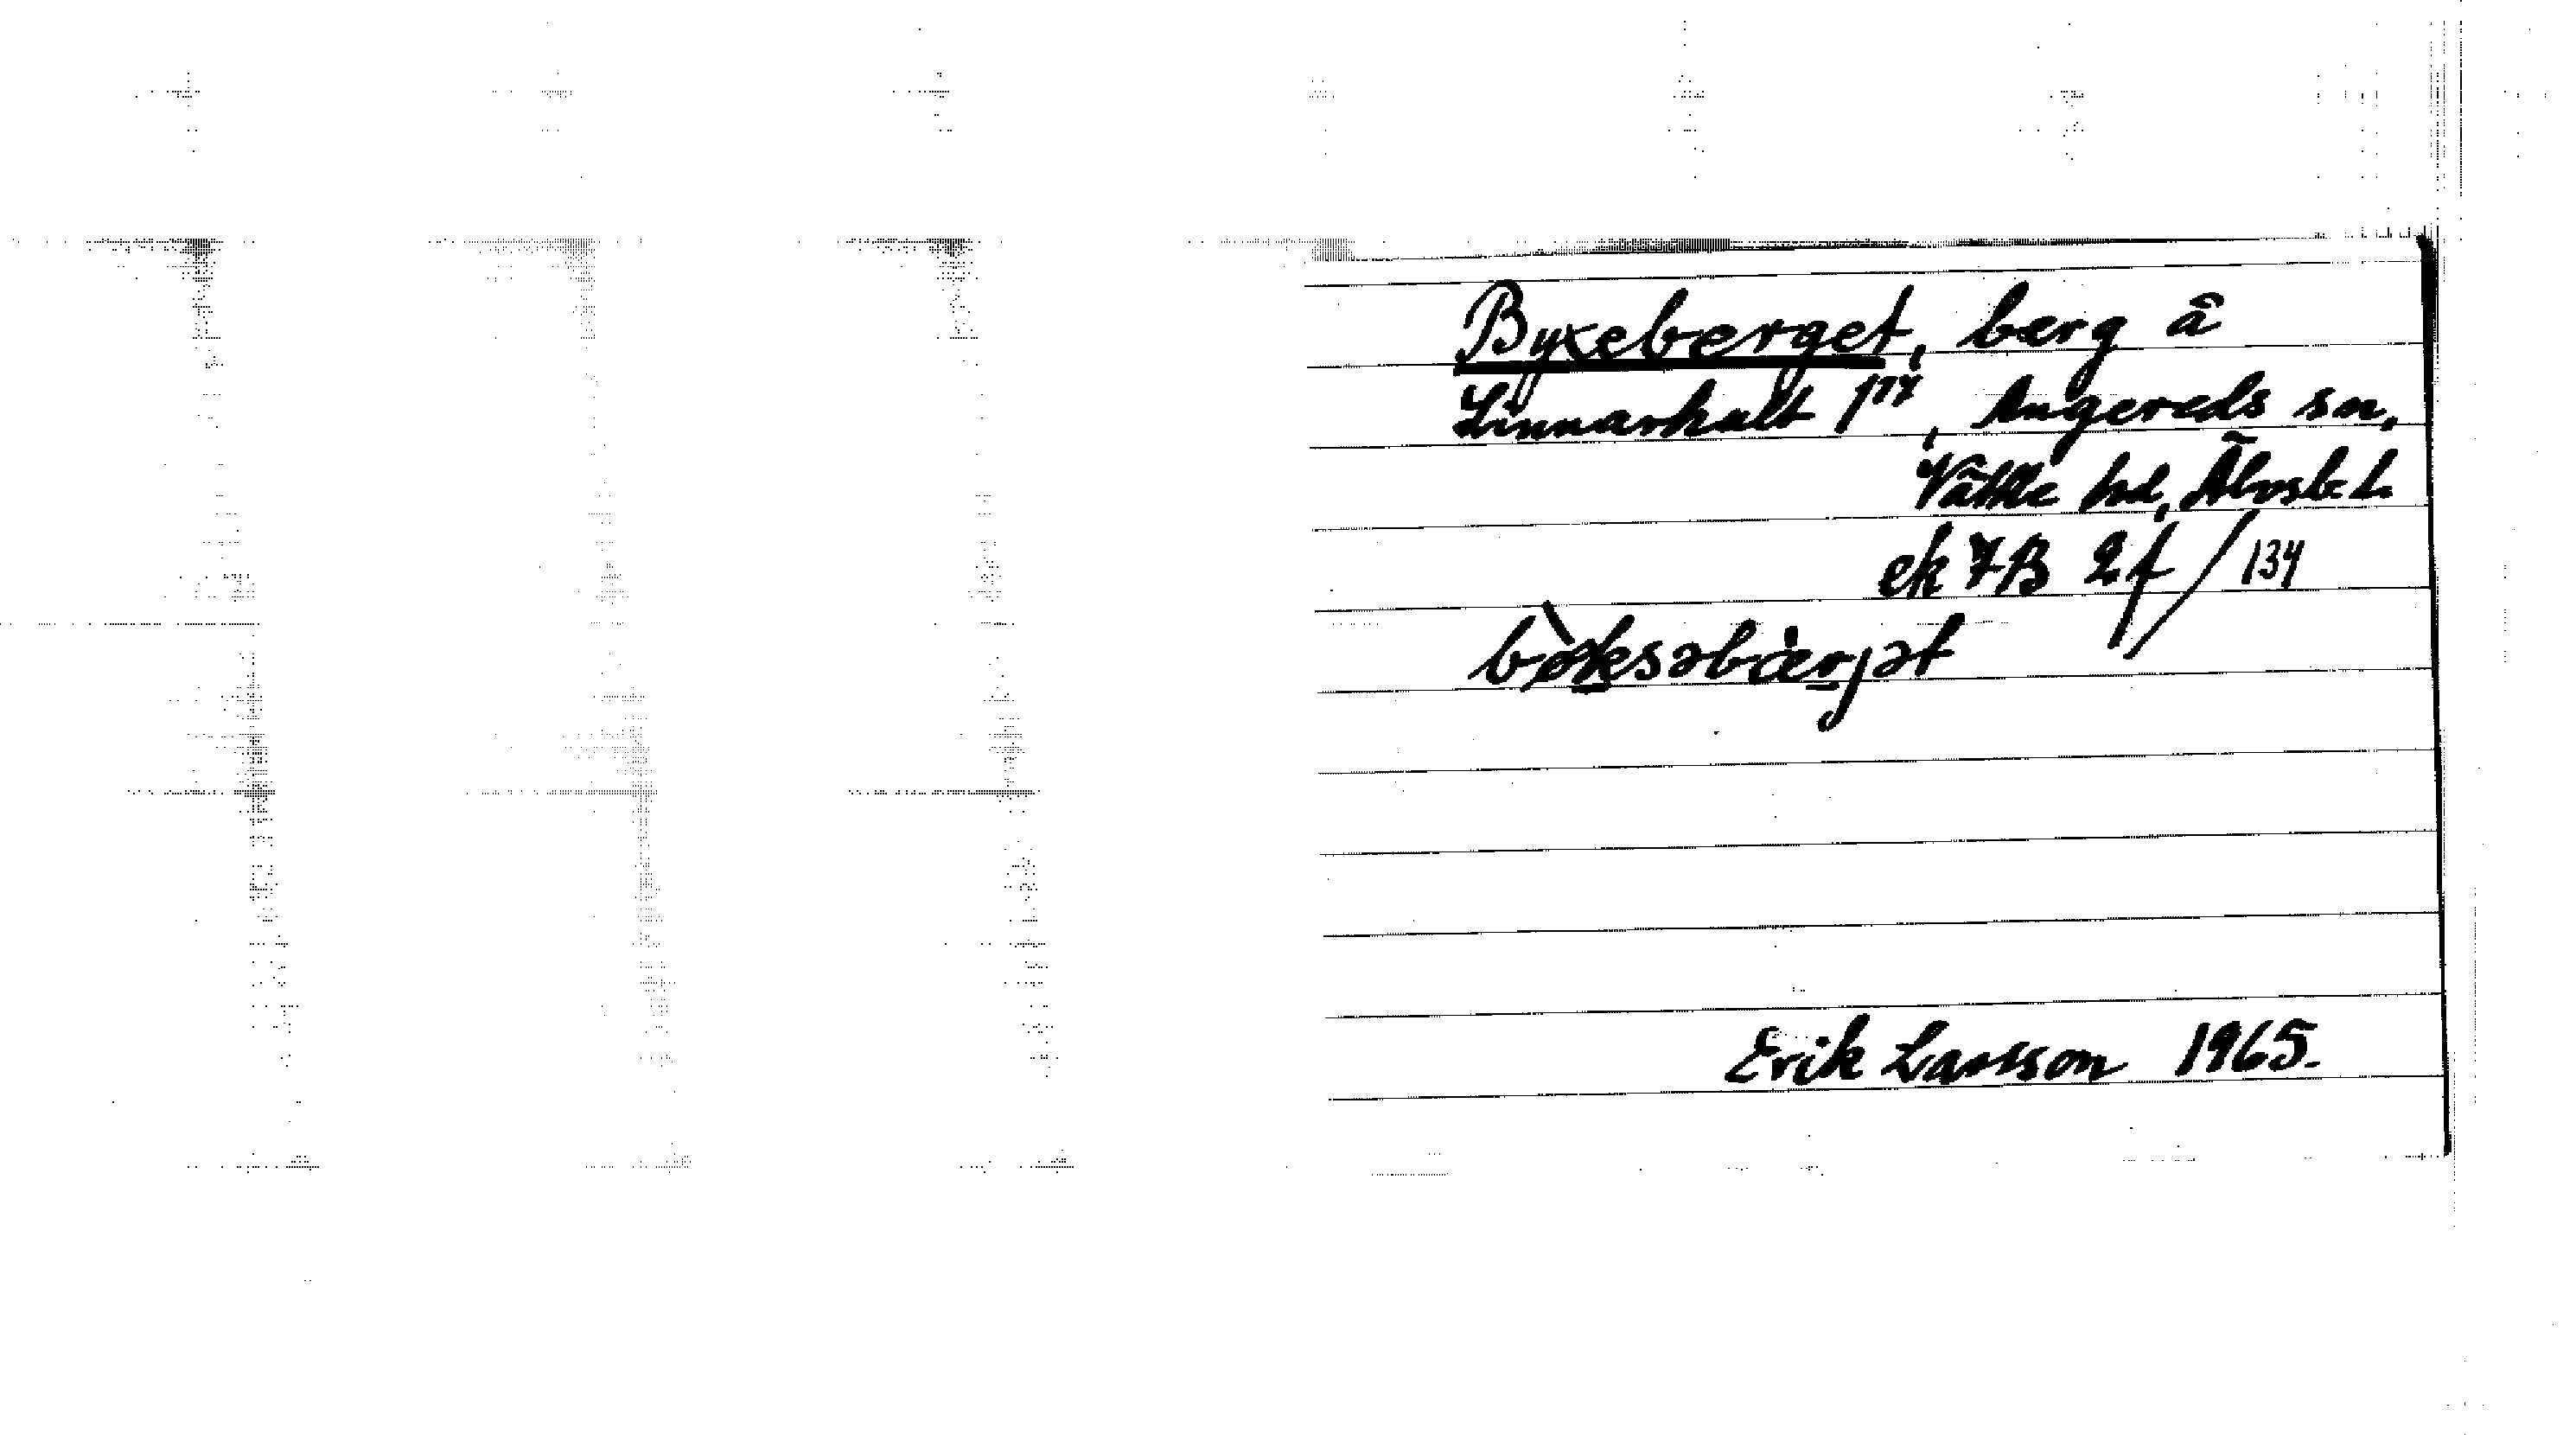 Byxeberget, berg å
Linnarhult 1¹⁷, Angereds sn,
Vättle hd, Älvsb. L.
ek 7B 2f/134
bø̀ksəbæ̀rjət
Erik Larsson 1965.